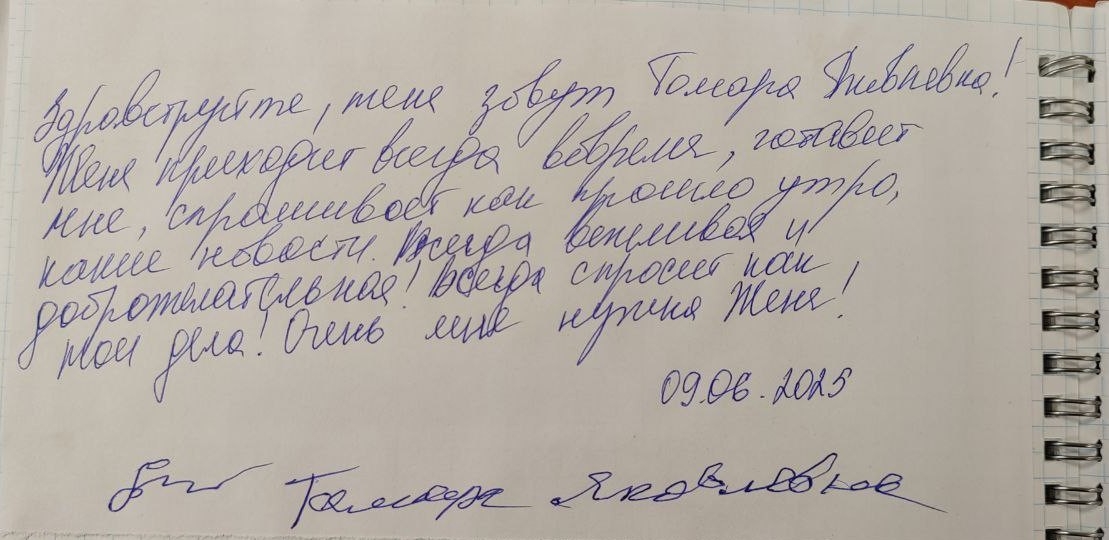 Здравствуйте, меня зовут Тамара Яковлевна!
Женя приходит всегда вовремя, готовит
мне, спрашивает как прошло утро,
какие новости. Всегда вежливая и
доброжелательная! Всегда спросит как
мои дела! Очень мне нужна Женя!
09.06.2025
Тамара Яковлевна